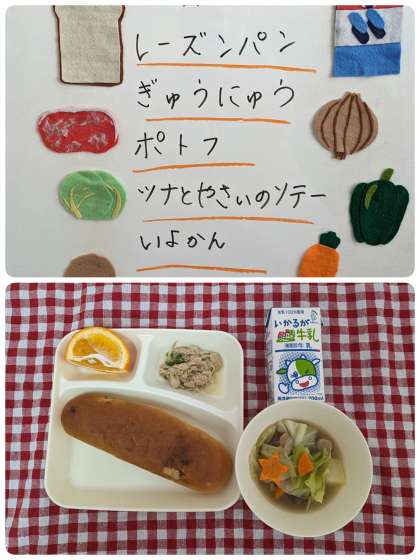 レーズンパン
ぎゅうにゅう
ポトフ
ツナとやさいのソテー
いよかん
いかるが
牛乳